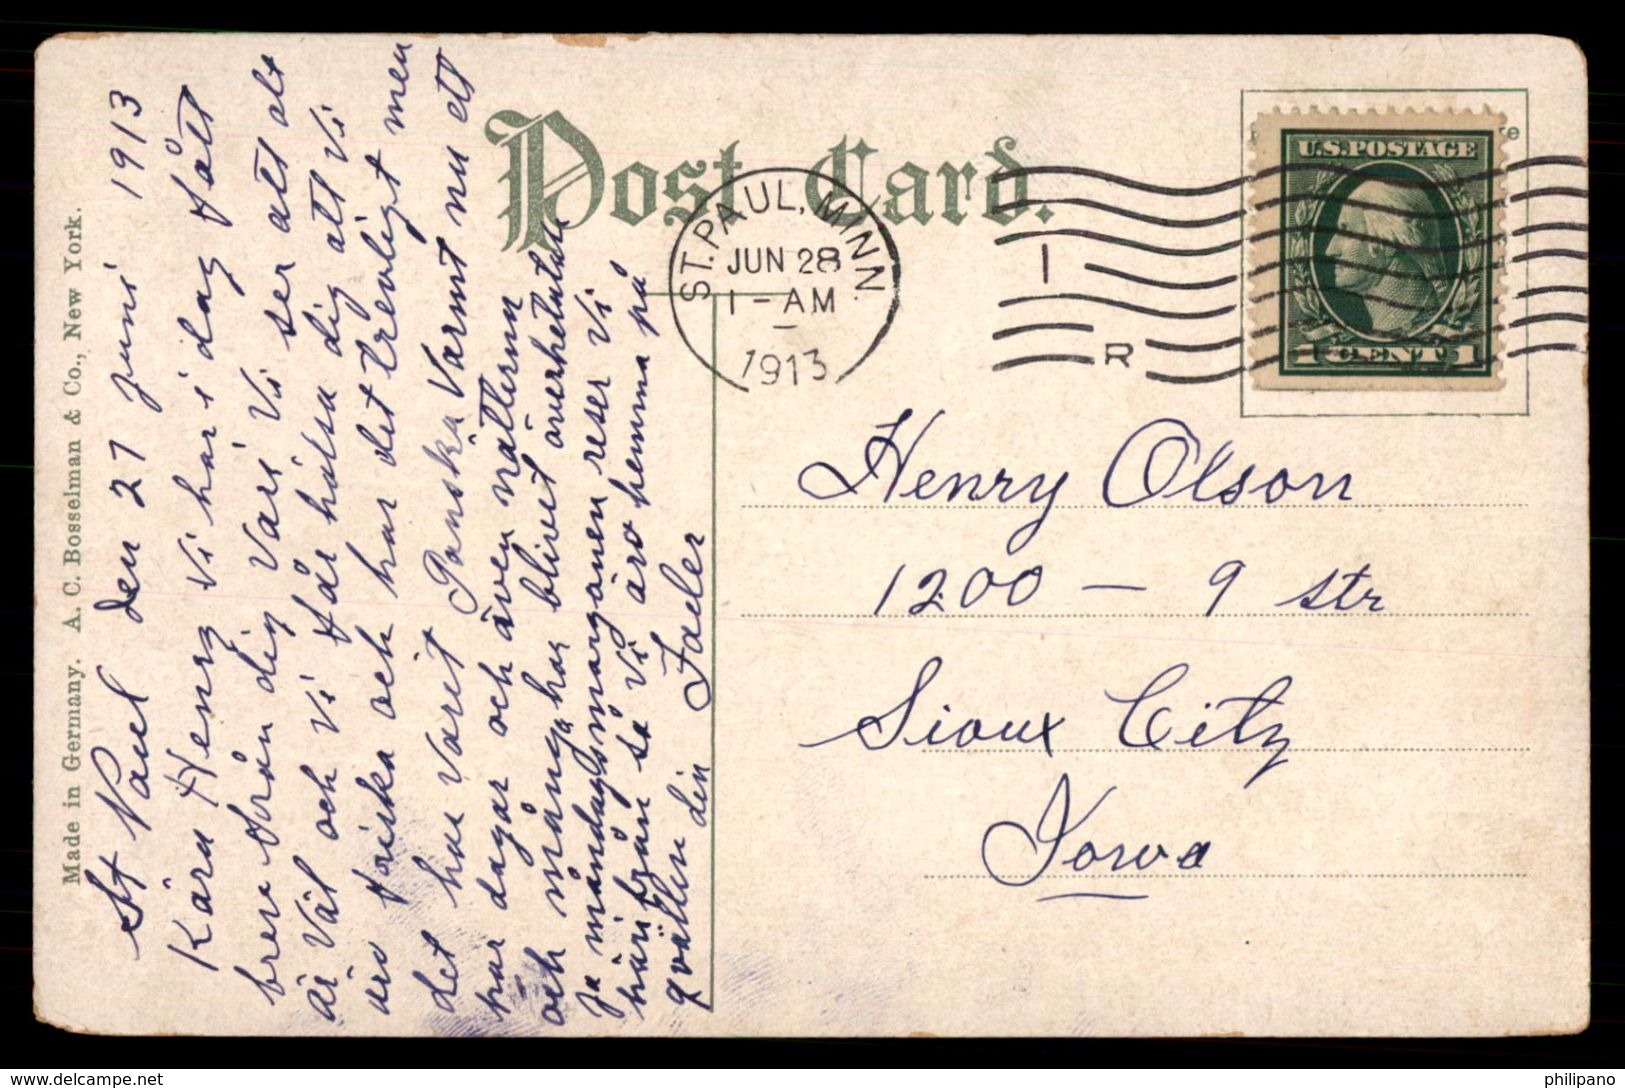 Made in Germany. A. C. Bosselman & Co., New York.
Post Card.
ST. PAUL, MINN.
JUN 28
1 - AM
1913
I
R
U.S. POSTAGE
1 CENT 1
St Paul den 27 juni 1913
Kära Henry Vi har i dag fått
brev från dig Vari Vi ser att alt
är Väl och Vi får hälsa dig att Vi
äro friska och har det trevligt men
det har Varit Ganska Varmt nu ett
par dagar och även nätterna
och många har blivet överhetade
Ja måndagsmorgonen reser Vi
härifrån så Vi äro hemma på
qvällen din Fader
Henry Olson
1200 — 9 str
Sioux City
Iowa
delcampe.net
philipano